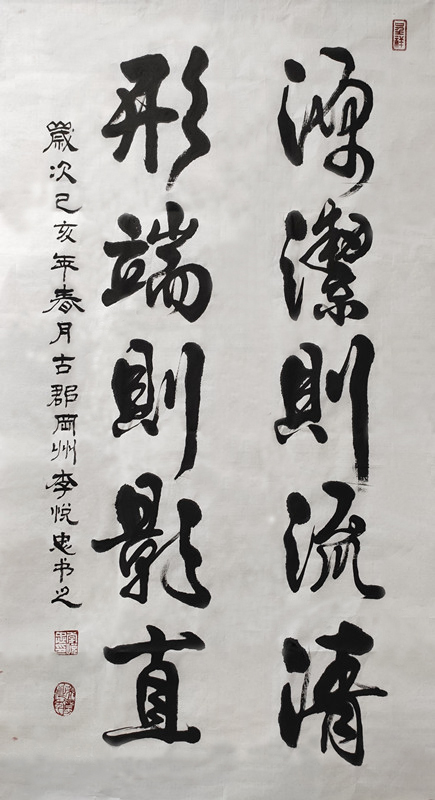 源潔則流清
形端則影直
歲次己亥年春月古郡岡州李悦忠书之